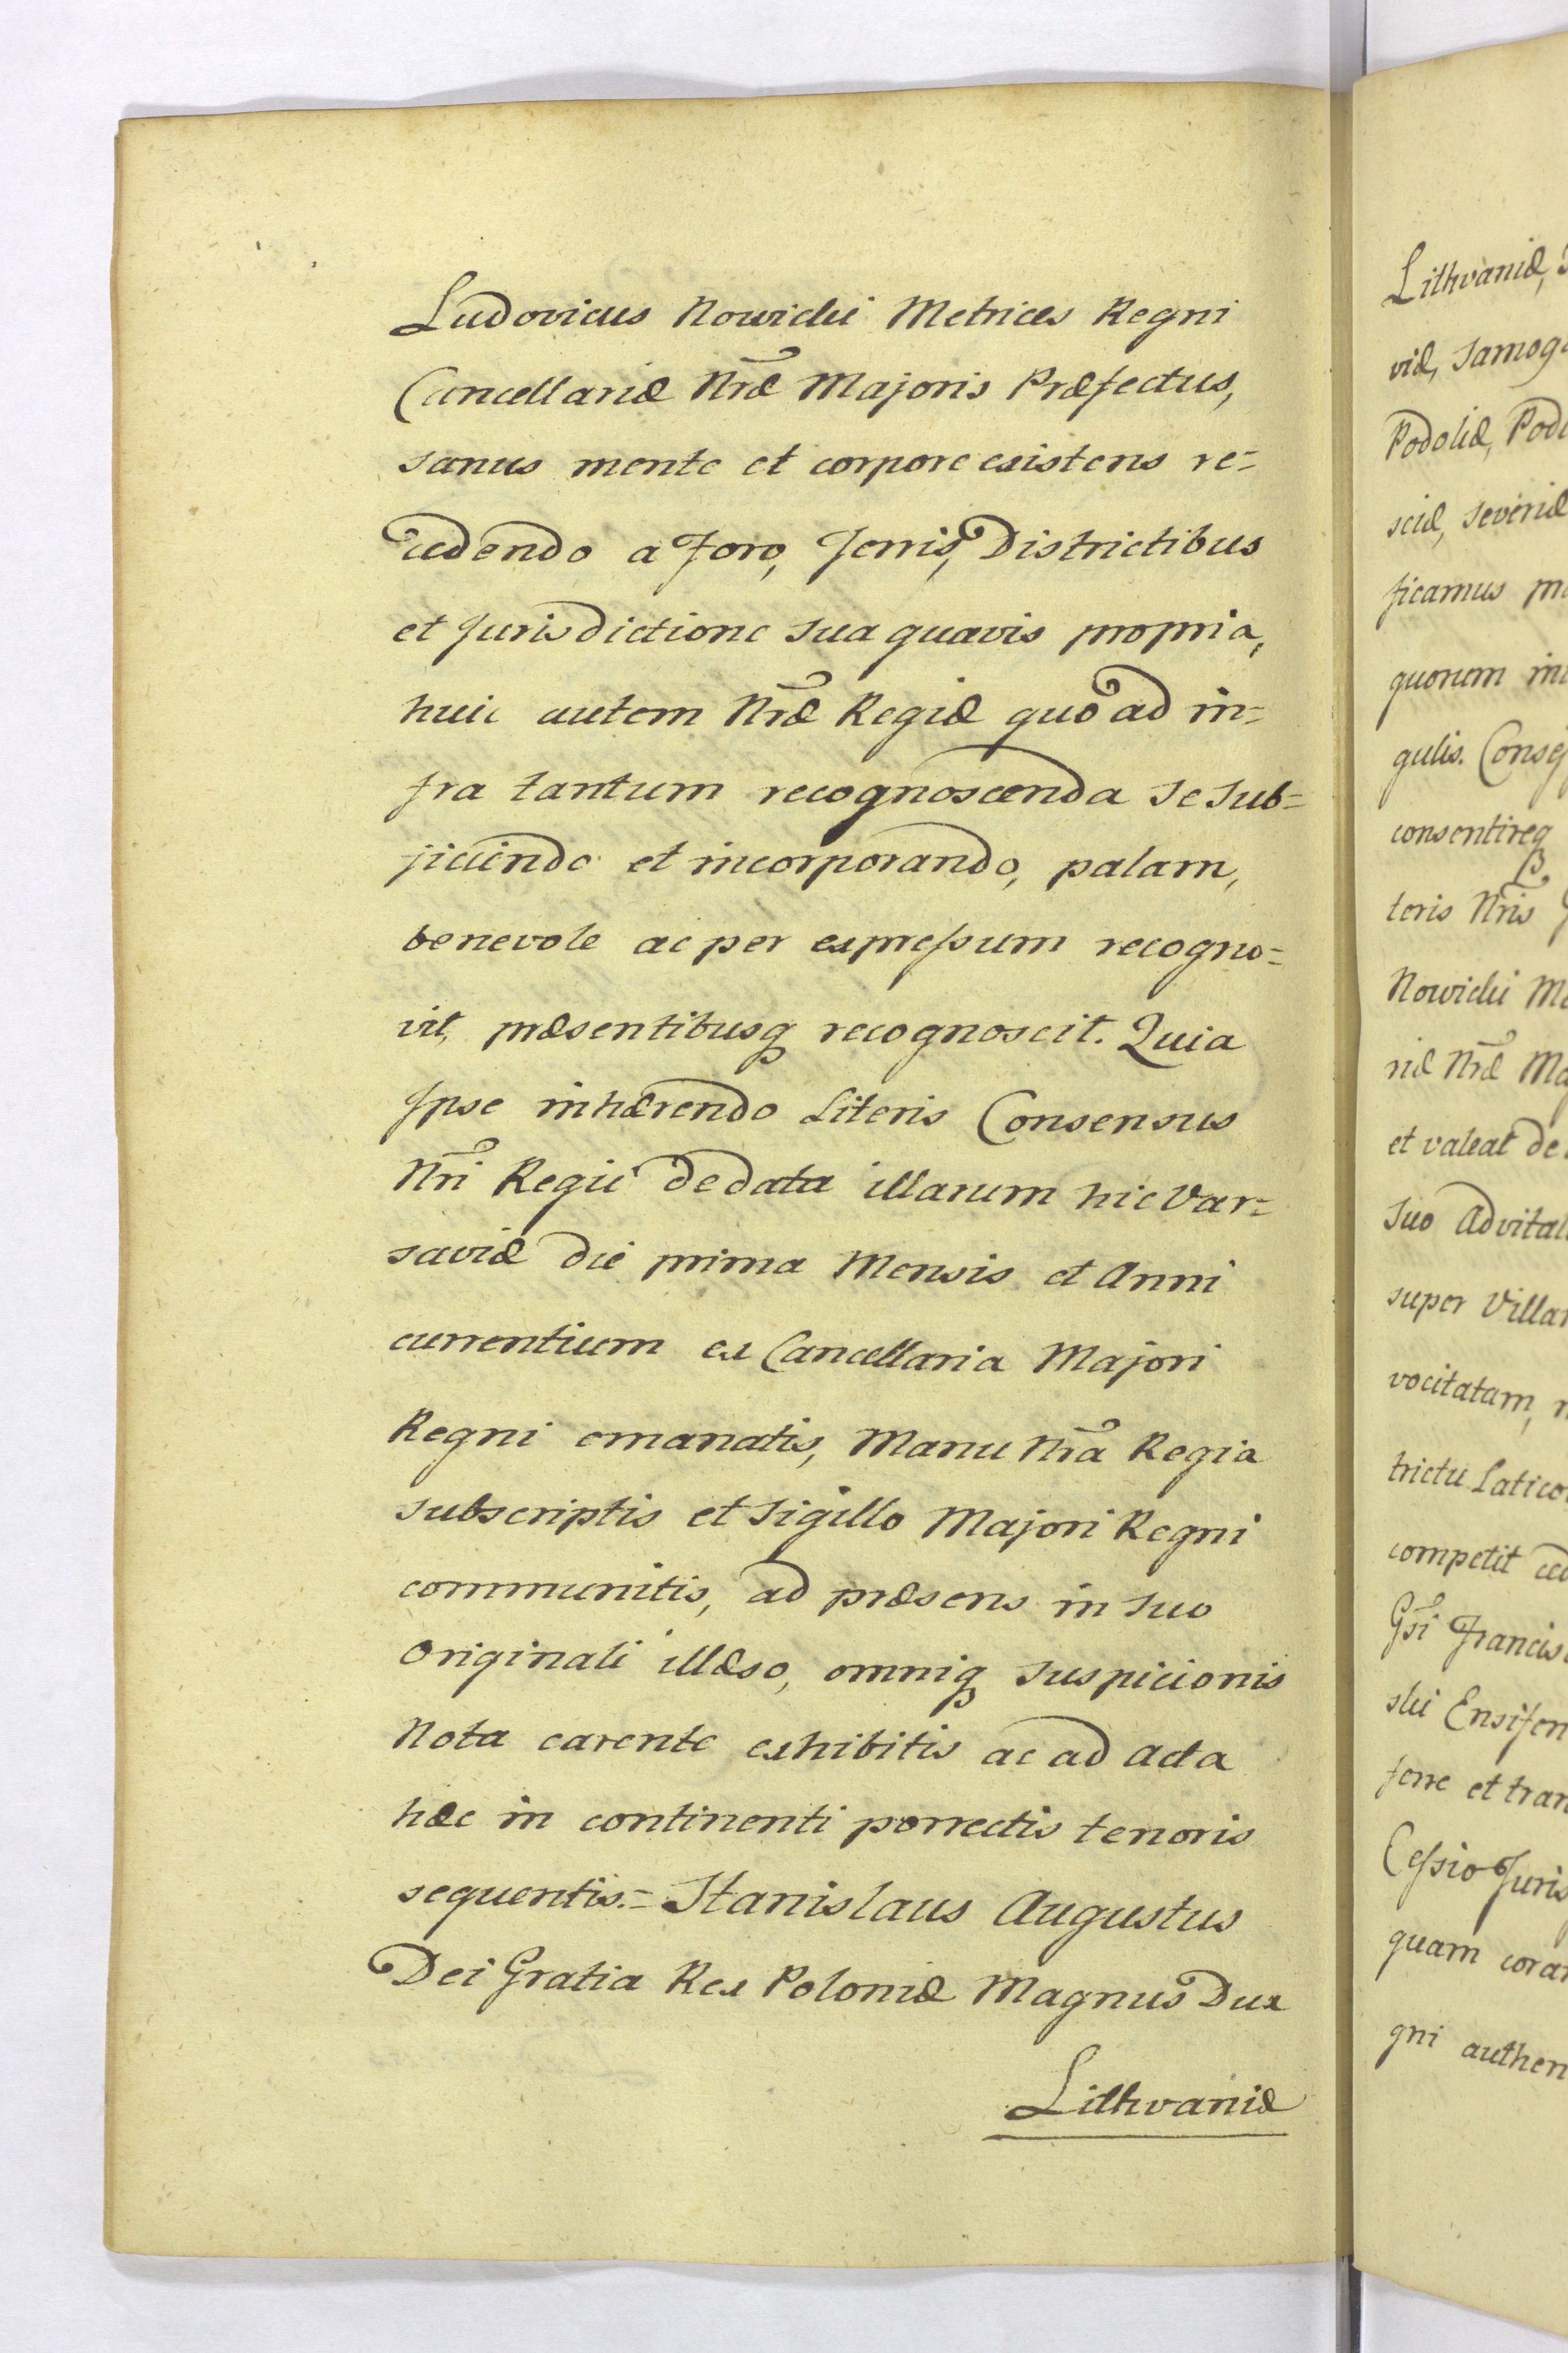 Ludovicus Nowicki Metrices Regni
Cancellariæ Nræ Majoris Præfectus,
sanus mente et corpore existens re=
cedendo a Foro, Terris, Districtibus
et Jurisdictione sua quavis propria,
huic autem Nræ Regiæ quo ad in=
fra tantum recognoscenda se sub=
jiciendo et incorporando, palam,
benevole ac per expressum recogno=
vit, præsentibusq recognoscit. Quia
Ipse inhærendo Literis Consensus
Nri Regii de data illarum hic Var=
saviæ die prima Mensis et Anni
currentium ex Cancellaria Majori
Regni emanatis, Manu Nra Regia
subscriptis et Sigillo Majori Regni
communitis, ad præsens in suo
Originali illæso, omniq suspicionis
Nota carente exhibitis ac ad acta
hæc in continenti porrectis tenoris
sequentis.= Stanislaus Augustus
Dei Gratia Rex Poloniæ Magnus Dux
Lithvaniæ
Lithvaniæ,
viæ, Samog
Podoliæ, Pod
sciæ, Severiæ
ficamus
quorum
gulis.
consentireq
teris Nris
Nowicki
riæ Nræ
et valeat de
suo advital
super Villa
vocitatam,
trictu Latico
competit
Gsi Francis
ski Ensifer
ferre et tran
Cessio Juris
quam cora
gni authen